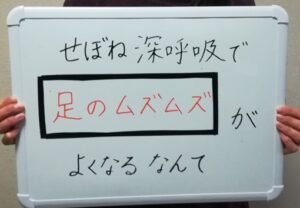 せぼね深呼吸で
足のムズムズが
よくなるなんて